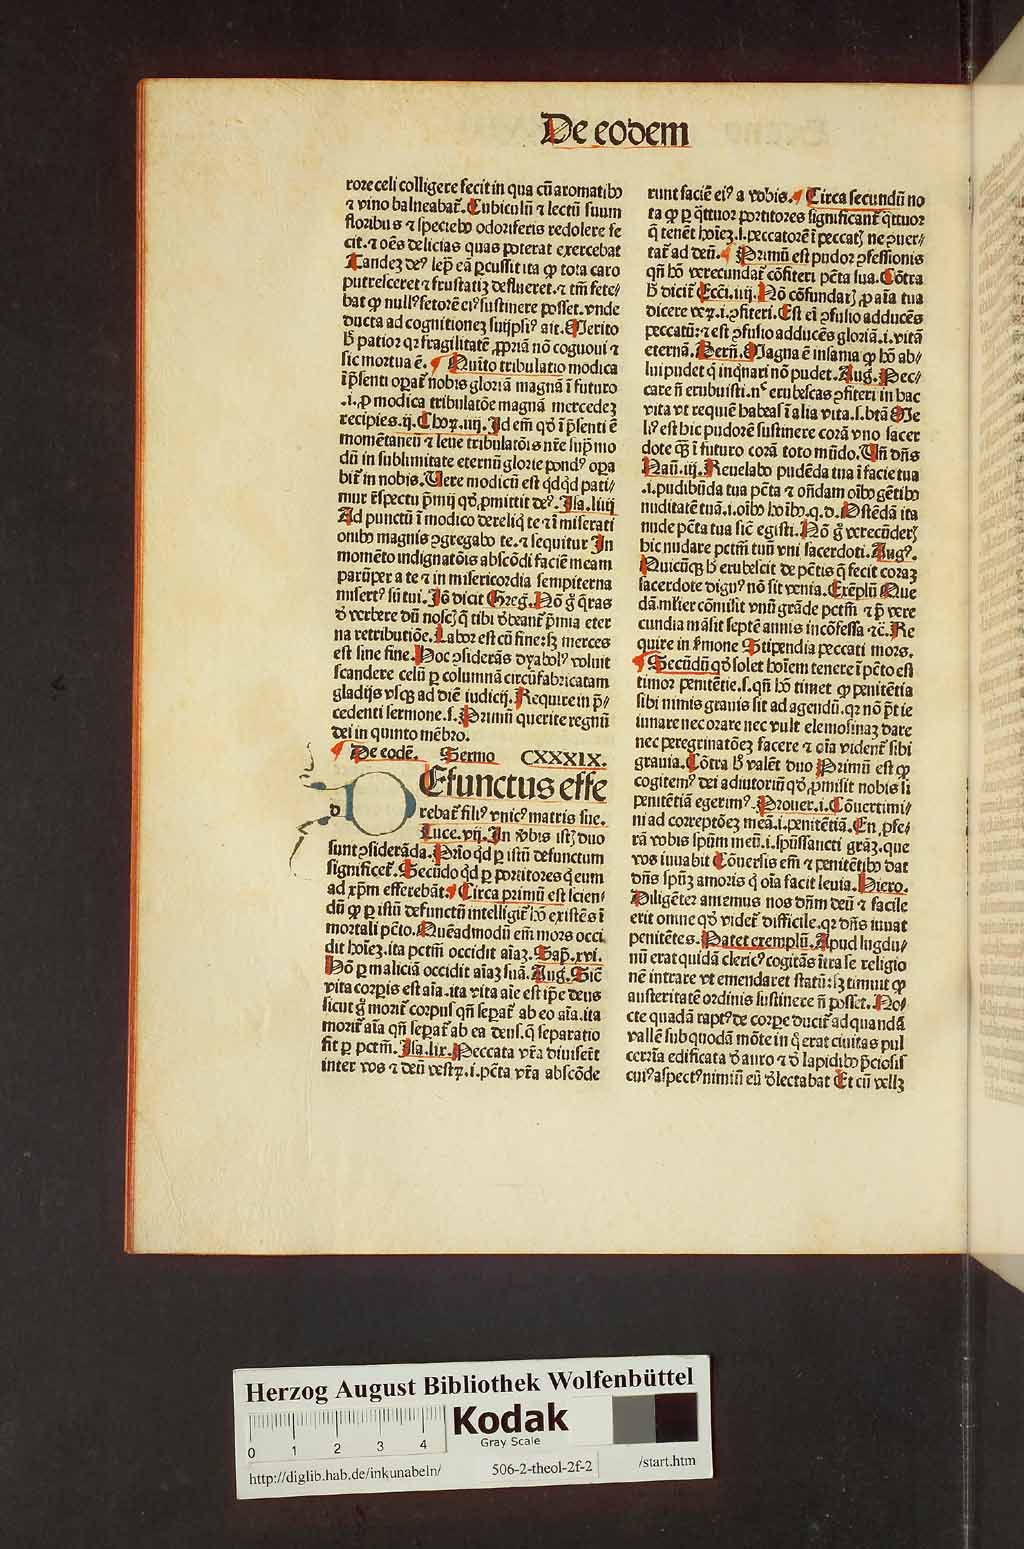 De eodem
rore celi colligere fecit in qua cū aromatibꝰ
⁊ vino balneabat᷑. Cubiculū ⁊ lectū suum
floribus ⁊ speciebꝰ odoriferis redolere fe
cit. ⁊ oēs delicias quas poterat exercebat
Tandeꝫ deꝰ lep̄ eā ꝑcussit ita ꝙ tota caro
putresceret ⁊ frustatiꝫ deflueret. ⁊ tm̄ fete⸗
bat ꝙ nullꝰ fetorē eiꝰ sustinere posset. vnde
ducta ad cognitioneꝫ suijpsiꝰ ait. Merito
h̄ patior qꝛ fragilitatē ꝓpriā nō cognoui ⁊
sic mortua ē. ¶ Quīto tribulatio modica
ī p̄senti oꝑat᷑ nobis gloriā magnā ī futuro
.i. ꝓ modica tribulatōe magnā mercedeꝫ
recipies. ij. Choꝝ. iiij. Id em̄ qd̄ ī p̄senti ē
momētaneū ⁊ leue tribulatōis nr̄e sup̄ mo
dū in sublimitate eternū glorie pondꝰ oꝑa
bit᷑ in nobis. Vere modicū est qd̓qd̓ pati⸗
mur r̄spectu p̄mij qd̓ ꝓmittit deꝰ. Isa. liiij
Ad punctū ī modico dereliq̄ te ⁊ ī miserati
onibꝰ magnis ꝯgregabo te. ⁊ sequitur In
momēto indignatōis abscōdi faciē meam
parūper a te ⁊ in misericordia sempiterna
misertꝰ sū tui. Iō dicit Greg̓. Nō g̊ q̄ras
d̓ verbere dū noscꝭ q̄ tibi d̓beant᷑ p̄mia eter
na retributiōe. Labor est cū fine: sꝫ merces
est sine fine. Hoc ꝯsiderās dyabolꝰ voluit
scandere celū ꝑ columnā circūfabricatam
gladijs vsqꝫ ad diē iudicij. Require in p̄⸗
cedenti sermone. s. Primū querite regnū
dei in quinto mēbro.
¶ De eodē. Sermo CXXXIX.
d
DEfunctus effe
rebat᷑ filiꝰ vnicꝰ matris sue.
Luce. vij. In v̓bis istꝭ duo
sunt ꝯsiderāda. Prīo qd̓ ꝑ istū defunctum
significet᷑. Secūdo qd̓ ꝑ portitores q̄ eum
ad xp̄m efferebāt. ¶ Circa primū est scien⸗
dū ꝙ ꝑ istū defunctū intelligit᷑ hō existēs ī
mortali pc̄to. Quēadmodū em̄ mors occi
dit hoīeꝫ. ita pctm̄ occidit aīaꝫ. Sap̄. xvi.
Hō ꝑ maliciā occidit aīaꝫ suā. Aug. Sic̄
vita corpis est aīa. ita vita aīe est ip̄e deus
sicut g̊ morit᷑ corpus qn̄ sepat᷑ ab eo aīa. ita
morit᷑ aīa qn̄ sepat᷑ ab ea deus. q̄ separatio
fit ꝑ pctm̄. Isa. lix. Peccata vr̄a diuiserūt
inter vos ⁊ deū vestꝝ. i. pc̄ta vr̄a abscōde
runt faciē eiꝰ a vobis. ¶ Circa secundū no
ta ꝙ ꝑ q̄ttuor portitores significant᷑ q̄ttuor
q̄ tenēt hoīeꝫ. i. peccatorē ī peccatꝭ ne ꝯuer⸗
tat᷑ ad deū. ¶ Primū est pudor ꝯfessionis
qn̄ hō verecundat᷑ cōfiteri pc̄ta sua. Cōtra
h̄ dicit᷑ Ecci. iiij. Nō cōfundarꝭ ꝓ aīa tua
dicere veꝝ. i. ꝯfiteri. Est em̄ ꝯfusio adducēs
peccatū: ⁊ est ꝯfusio adducēs gloriā. i. vitā
eternā. Bern̄. Magna ē insania ꝙ hō ab⸗
lui pudet q̄ inqnari nō pudet. Aug. Pec⸗
care n̄ erubuisti. nc̄ erubescas ꝯfiteri in hac
vita vt requiē habeas ī alia vita. s. btā Me
liꝰ est hic pudorē sustinere corā vno sacer
dote qꝫ ī futuro corā toto mūdo. Vn̄ dn̄s
Nau̅. iij. Reuelabo pudēda tua ī facie tua
.i. pudibūda tua pc̄ta ⁊ on̄dam oībꝰ gētibꝰ
nuditatē tuā. i. oībꝰ hoībꝰ. q. d. Ostēdā ita
nude pc̄ta tua sic̄ egisti. Nō g̊ verecūderꝭ
hic nudare pctm̄ tuū vni sacerdoti. Augꝰ.
Quicūqꝫ h̄ erubescit de pc̄tis q̄ fecit coraꝫ
sacerdote dignꝰ nō sit venia. Exēplū Que
dā mlier cōmisit vnū grāde pctm̄ ⁊ p̄ vere
cundia māsit septē annis incōfessa ⁊c. Re
quire in s̓mone Stipendia peccati mors.
¶ Secūdū qd̓ solet hoīem tenere ī pc̄to est
timor penitētie. s. qn̄ hō timet ꝙ penitētia
sibi nimis grauis sit ad agendū. qꝛ nō p̄t ie
iunare nec orare nec vult elemosinaꝫ dare
nec peregrinatōeꝫ facere ⁊ oīa vident᷑ sibi
grauia. Cōtra h̄ valēt duo Primū est ꝙ
cogitemꝰ dei adiutoriū qd̓ ꝓmisit nobis si
penitētiā egerimꝰ. Prouer. i. Cōuertimi⸗
ni ad correptōeꝫ meā. i. penitētiā. En ꝓfe⸗
rā vobis spūm meū. i. spūssancti grāꝫ. que
vos iuuabit Cōuersis em̄ ⁊ penitētibꝰ dat
dn̄s spūꝫ amoris q̄ oīa facit leuia. Hiero.
Diligēter amemus nos dn̄m deū ⁊ facile
erit omne qd̓ videt᷑ difficile. qꝛ dn̄s iuuat
penitētes. Patet exemplū. Apud lugdu⸗
nū erat quidā clericꝰ cogitās īt̄ra se religio
nē intrare vt emendaret statū: sꝫ timuit ꝙ
austeritatē ordinis sustinere n̄ posset. No⸗
cte quadā raptꝰ de corpe ducit᷑ ad quandā
vallē sub quodā mōte in q̄ erat ciuitas pul
cerīa edificata d̓ auro ⁊ d̓ lapidibꝰ p̄ciosis
cuiꝰ aspectꝰ nimiū eū d̓lectabat Et cū velleꝫ
Herzog August Bibliothek Wolfenbüttel
0 1 2 3 4
Kodak
Gray Scale
http://diglib.hab.de/inkunabeln/ 506-2-theol-2f-2 /start.htm